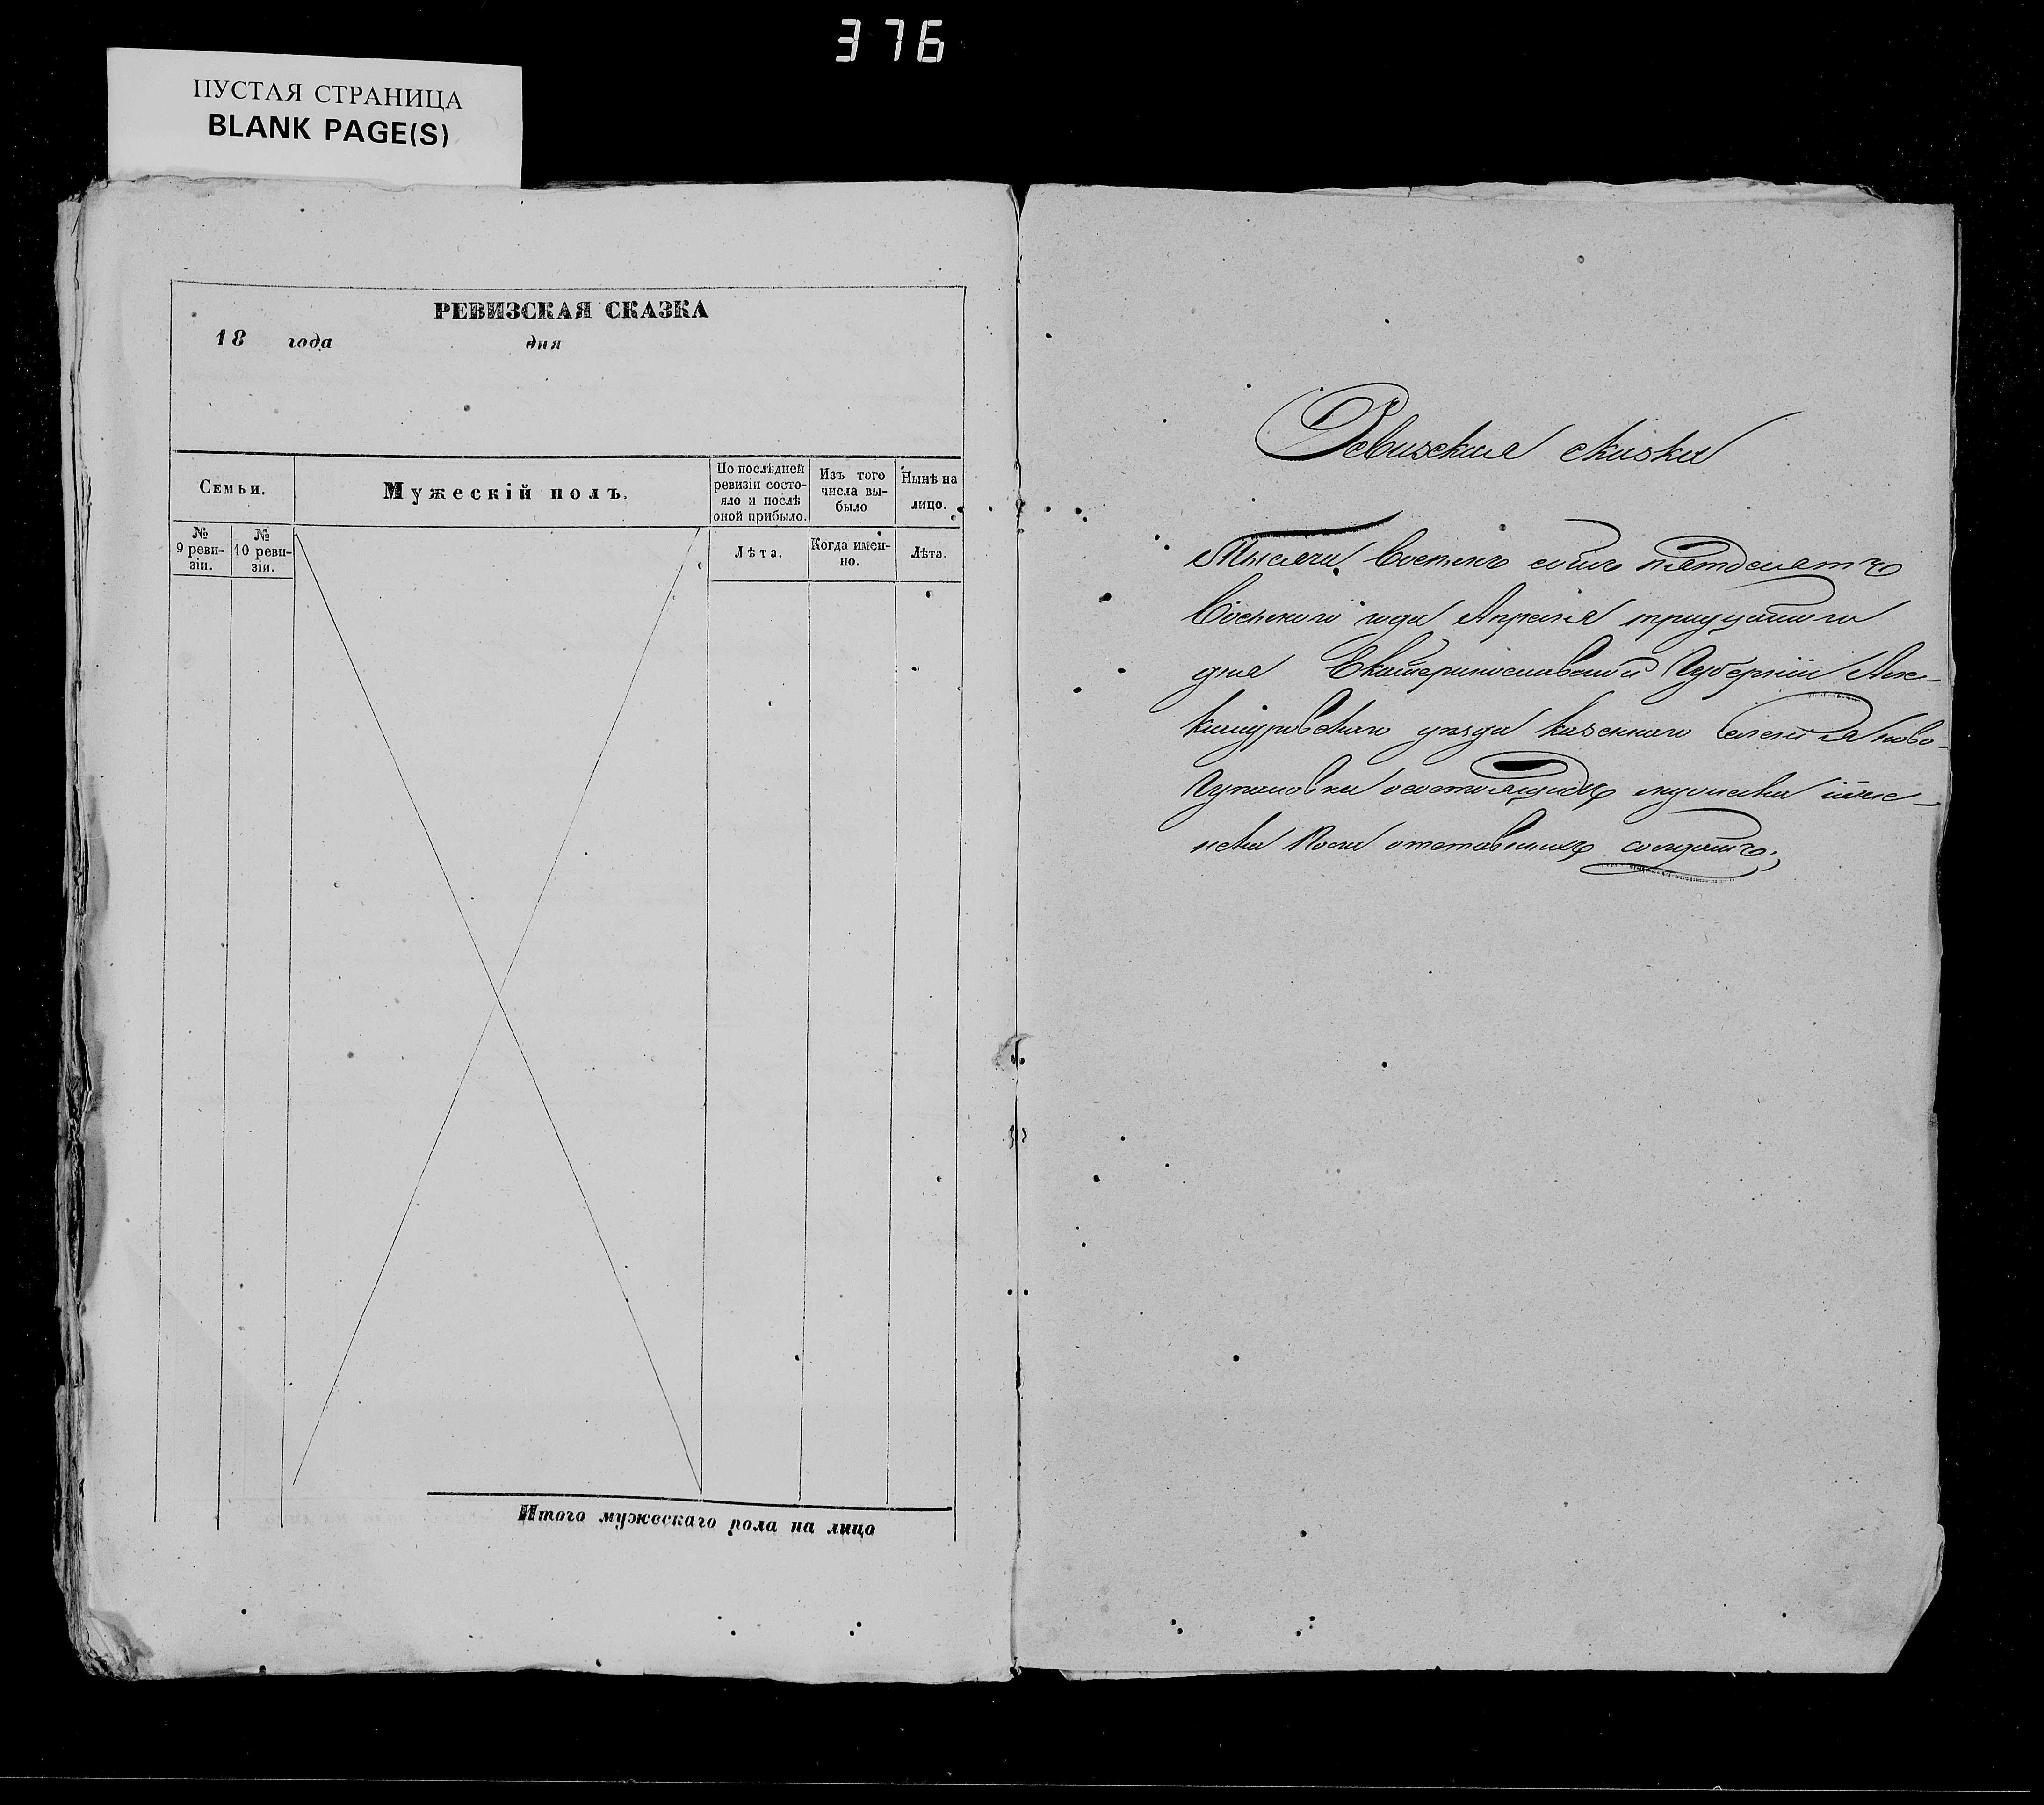 376
ПУСТАЯ СТРАНИЦА
BLANK PAGE(S)
РЕВИЗСКАЯ СКАЗКА
18 года дня
Семьи.
Мужескій полъ.
По послѣдней ревизіи состояло и послѣ оной прибыло.
Изъ того числа выбыло
Нынѣ на лицо.
№ 9 ревизіи.
№ 10 ревизіи.
Лѣта.
Когда именно.
Лѣта.
Итого мужескаго пола на лицо
Ревизская сказка
Тысяча восемь сотъ пятдесятъ
восьмого года Апреля тридцатого
дня Екатеринославской Губерніи Але-
ксандровского уезда казенного селенія ново-
состоящихъ
отставныхъ солдатъ.